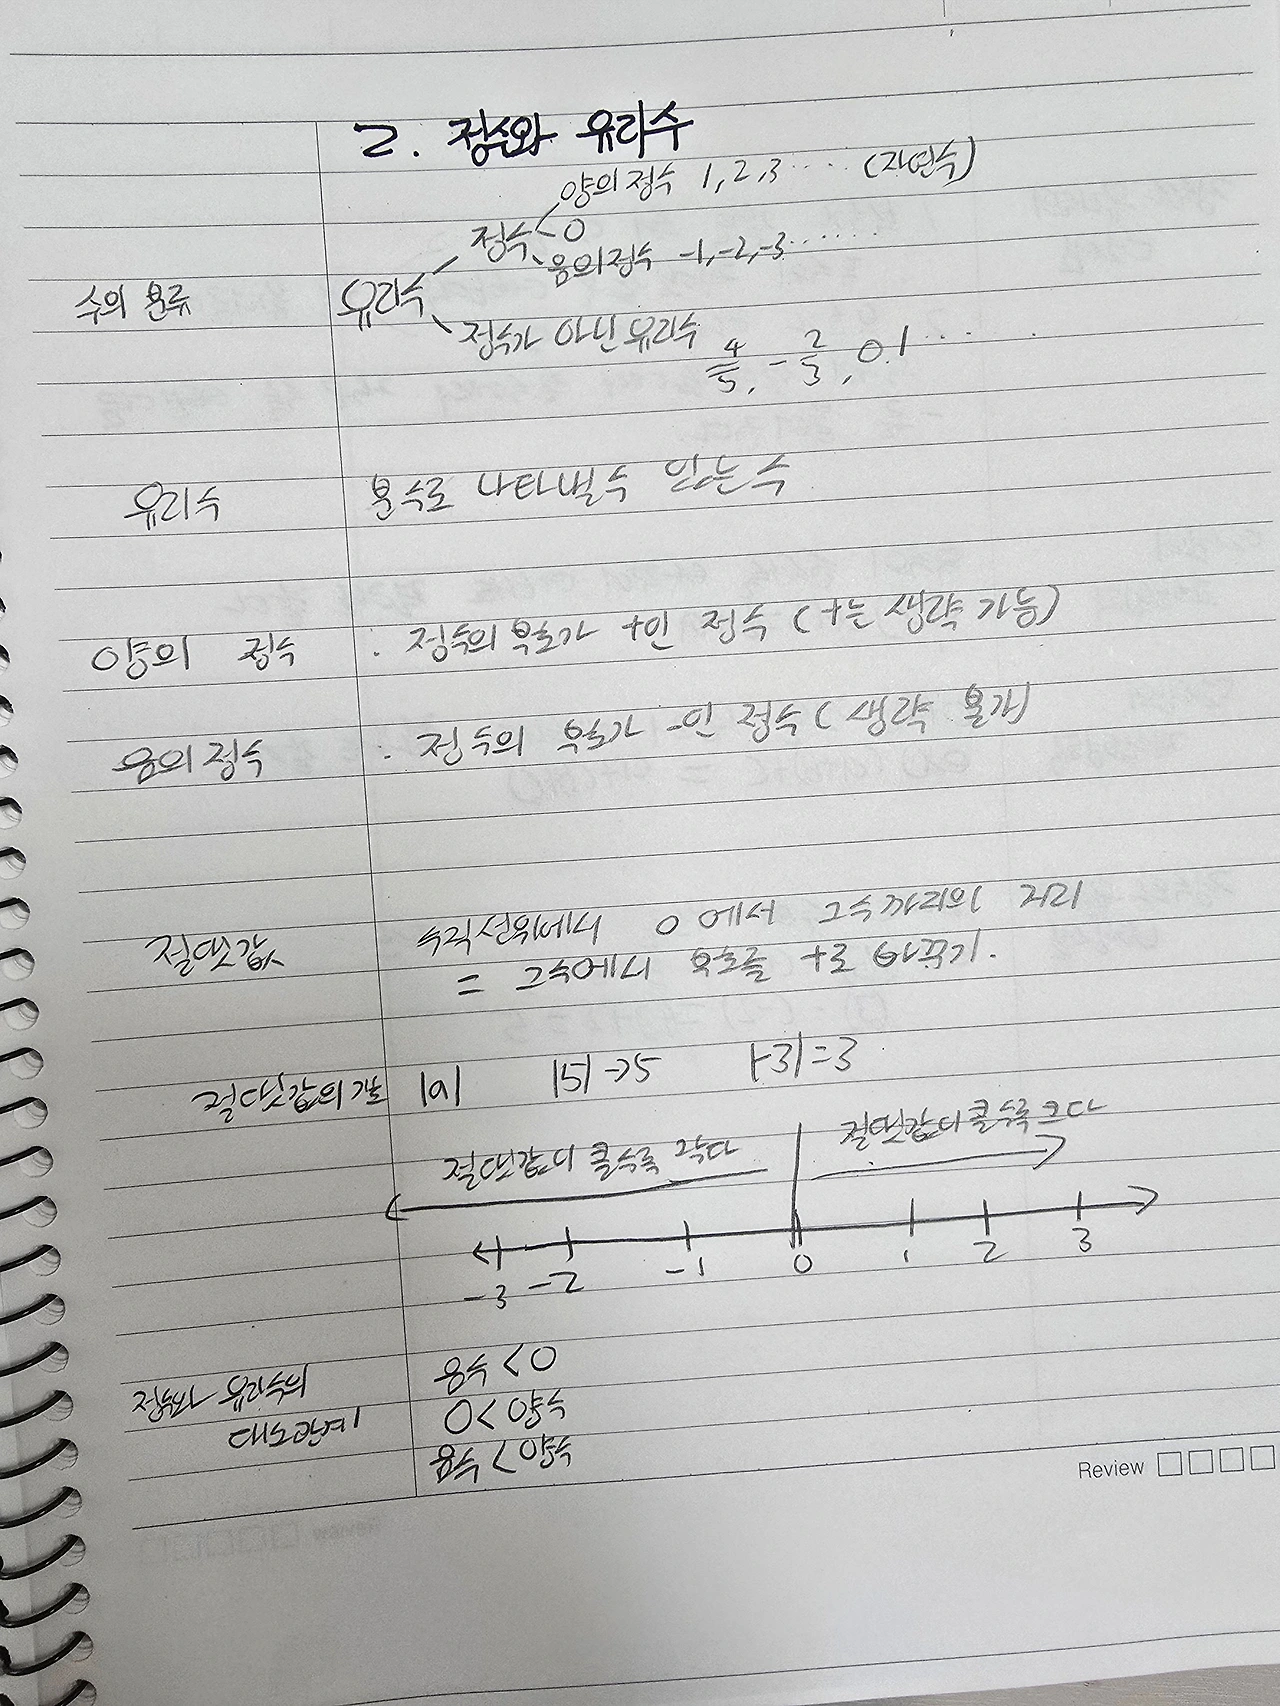 2. 정수와 유리수
양의 정수 1, 2, 3 ···· (자연수)
정수 0
음의 정수 -1, -2, -3 ······
수의 분류 유리수
정수가 아닌 유리수
4/5, -2/3, 0.1 ···
유리수 분수로 나타낼수 있는 수
양의 정수 : 정수의 부호가 +인 정수 (+는 생략 가능)
음의 정수 : 정수의 부호가 -인 정수 (생략 불가)
절댓값 수직선위에서 0에서 그수까지의 거리
= 그수에서 부호를 +로 바꾸기.
절댓값의 |a| |5|→5 |-3|=3
절댓값이 클수록 작다 절댓값이 클수록 크다
-3 -2 -1 0 1 2 3
음수 < 0
정수와 유리수의 0 < 양수
대소관계 음수 < 양수
Review